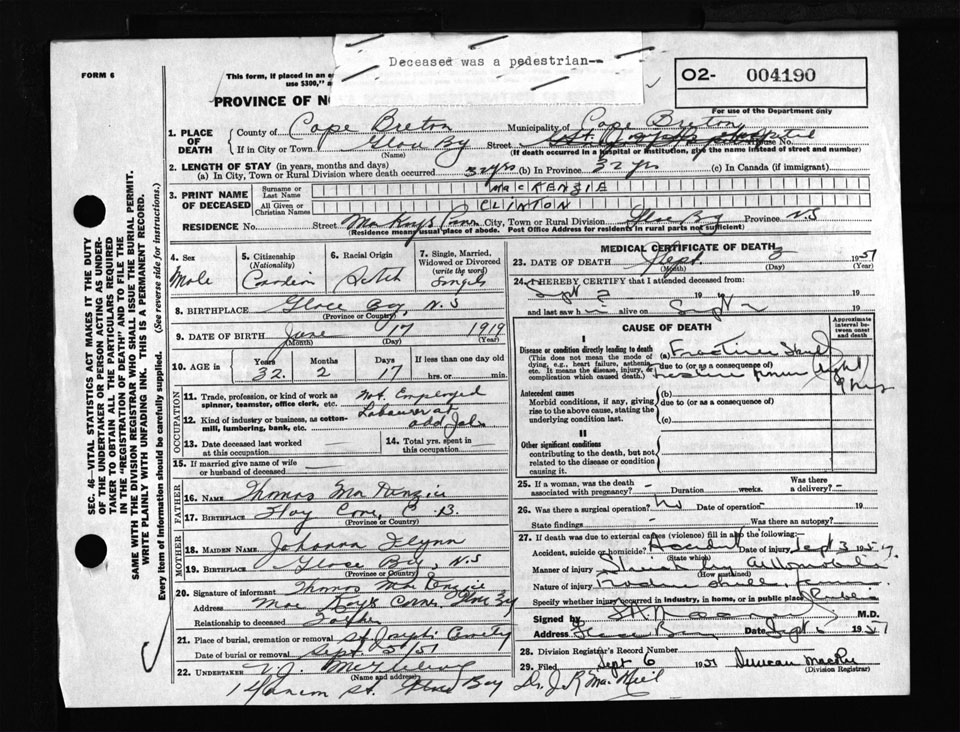 Deceased was a pedestrian--
FORM 6
This form, if placed in an e
use $300," a
O2- 004190
PROVINCE OF NO
For use of the Department only
1. PLACE OF DEATH
County of Cape Breton Municipality of Cape Breton
If in City or Town Glace Bay Street St. Joseph's Hospital House No.
(Name) (If death occurred in a hospital or institution, give the name instead of street and number)
2. LENGTH OF STAY (in years, months and days)
(a) In City, Town or Rural Division where death occurred 32 yrs (b) In Province 32 yrs (c) In Canada (if immigrant)
3. PRINT NAME OF DECEASED
Surname or Last Name MacKENZIE
All Given or Christian Names CLINTON
RESIDENCE No. Street City, Town or Rural Division Glace Bay Province N.S
(Residence means usual place of abode. Post Office Address for residents in rural parts not sufficient)
4. Sex Male
5. Citizenship (Nationality)
6. Racial Origin
7. Single, Married, Widowed or Divorced (write the word) Single
8. BIRTHPLACE Glace Bay, N.S
(Province or Country)
9. DATE OF BIRTH June 17 1919
(Month) (Day) (Year)
10. AGE in Years 32. Months 2 Days 17 If less than one day old
hrs. or min.
OCCUPATION
11. Trade, profession, or kind of work as spinner, teamster, office clerk, etc. Not Employed
12. Kind of industry or business, as cotton-mill, lumbering, bank, etc. Labourer at odd Jobs
13. Date deceased last worked at this occupation
14. Total yrs. spent in this occupation
15. If married give name of wife or husband of deceased
FATHER
16. NAME Thomas MacKenzie
17. BIRTHPLACE C.B.
(Province or Country)
MOTHER
18. MAIDEN NAME Johanna Flynn
19. BIRTHPLACE Glace Bay, N.S
(Province or Country)
20. Signature of informant Thomas MacKenzie
Address MacKays Corner Glace Bay
Relationship to deceased Father
21. Place of burial, cremation or removal St Josephs Cemetery
Date of burial or removal Sept. 5/51
22. UNDERTAKER
(Name and address)
St. Glace Bay
MEDICAL CERTIFICATE OF DEATH
23. DATE OF DEATH Sept. 3 1951
(Month) (Day) (Year)
24. I HEREBY CERTIFY that I attended deceased from:
Sept 19 to 19
and last saw h alive on Sept 19
CAUSE OF DEATH
Approximate interval between onset and death
I
Disease or condition directly leading to death
(This does not mean the mode of dying, e.g., heart failure, asthenia, etc. It means the disease, injury, or complication which caused death.)
(a) Fracture Skull
due to (or as a consequence of)
Antecedent causes
Morbid conditions, if any, giving rise to the above cause, stating the underlying condition last.
(b)
due to (or as a consequence of)
(c)
II
Other significant conditions contributing to the death, but not related to the disease or condition causing it.
25. If a woman, was the death associated with pregnancy? - Duration weeks. Was there a delivery? -
26. Was there a surgical operation? No Date of operation 19
State findings - Was there an autopsy?
27. If death was due to external causes (violence) fill in also the following:
Accident, suicide or homicide? Accident Date of injury Sept 3 1951
(State which)
Manner of injury Struck by Automobile
(How sustained)
Nature of injury Fracture skull
Specify whether injury occurred in industry, in home, or in public place Public
Signed by M.D.
Address Glace Bay Date Sept 1951
28. Division Registrar's Record Number
29. Filed Sept 6 1951 Duncan MacRae
(Division Registrar)
Dr. J R MacNeil
SEC. 46—VITAL STATISTICS ACT MAKES IT THE DUTY
OF THE UNDERTAKER OR PERSON ACTING AS UNDER-
TAKER TO OBTAIN ALL THE PARTICULARS REQUIRED
IN THE "REGISTRATION OF DEATH" AND TO FILE THE
SAME WITH THE DIVISION REGISTRAR WHO SHALL ISSUE THE BURIAL PERMIT.
WRITE PLAINLY WITH UNFADING INK. THIS IS A PERMANENT RECORD.
Every item of information should be carefully supplied. (See reverse side for instructions.)